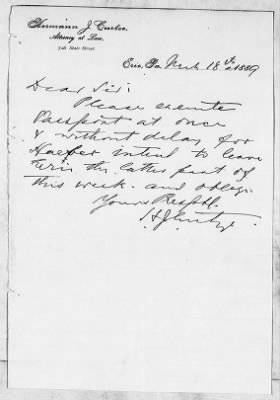 Hermann J. Curtze,
Attorney at Law,
State Street.
Erie, Pa. Mch 18th 1889
Dear Sir:
Please execute
Passport at once
& without delay for
intend to leave
Erie the latter part of
this week. and oblige
Yours Respfl.
HJCurtze